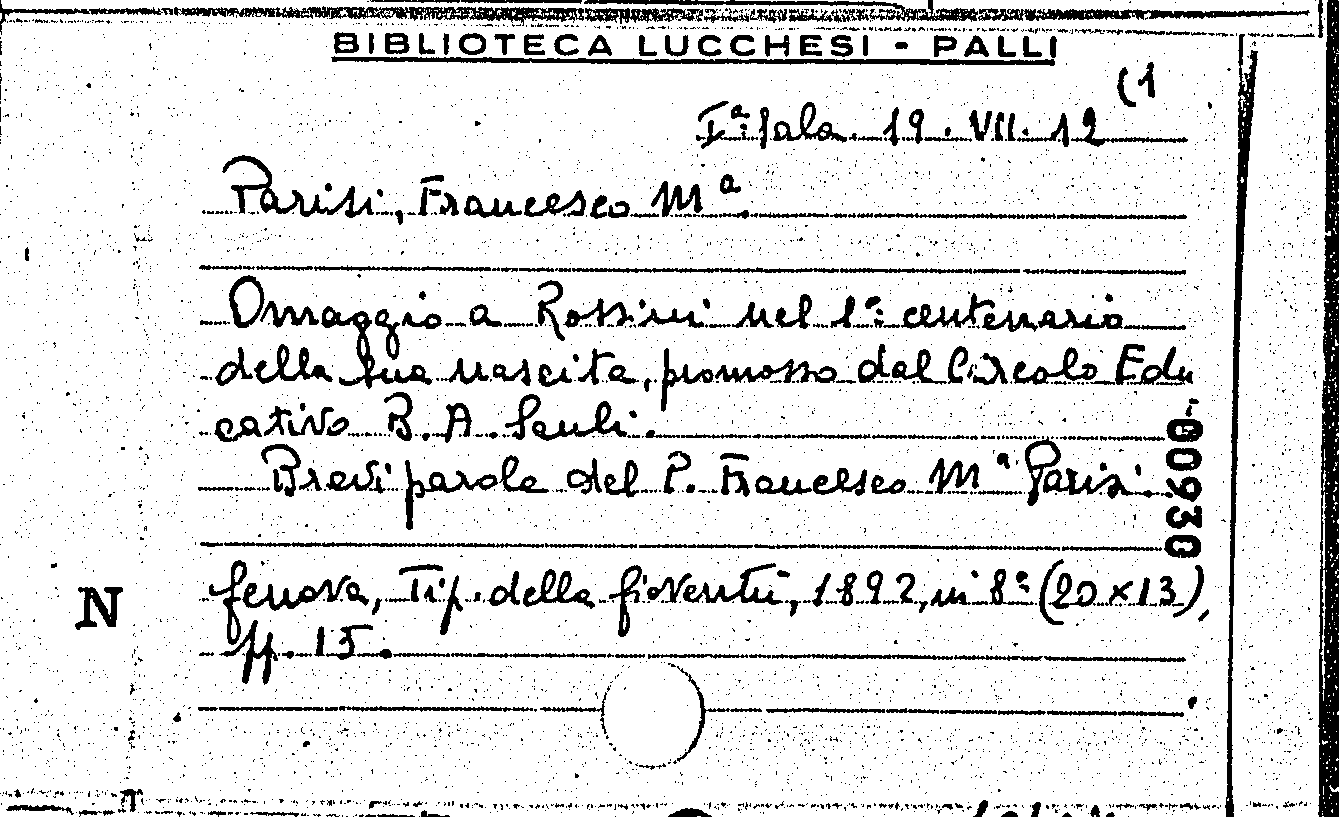 BIBLIOTECA LUCCHESI - PALLI
(1
Iª: Sala. 19. VII. 12
Parisi, Francesco Mª.
Omaggio a Rossini nel 1º: centenario
della sua nascita, promosso dal Circolo Edu
cativo B. A. Sauli.
Brevi parole del P. Francesco Mª Parisi.
00930
Genova, Tip. della Gioventù, 1892, in 8º: (20 x 13),
pp. 15.
N